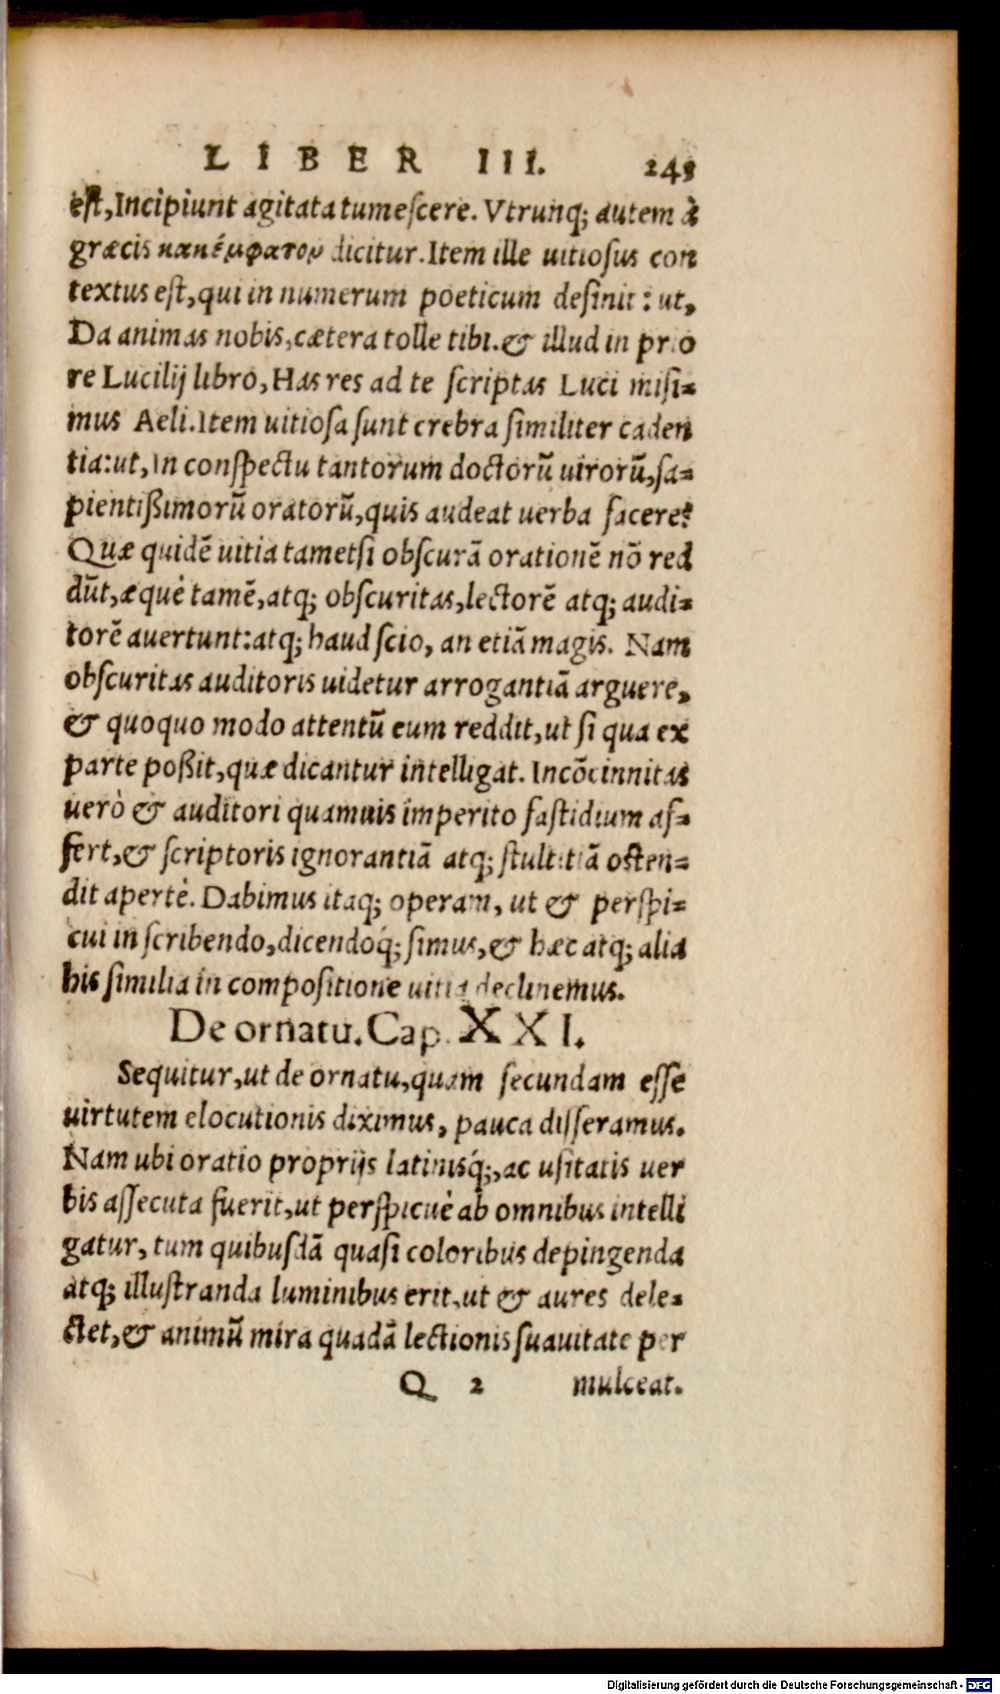 LIBER III. 243
est, Incipiunt agitata tumescere. Vtrunq; autem à
græcis κακέμφατον dicitur. Item ille uitiosus con
textus est, qui in numerum poeticum desinit: ut,
Da animas nobis, cætera tolle tibi. & illud in prio
re Lucilij libro, Has res ad te scriptas Luci misi-
mus Aeli. Item uitiosa sunt crebra similiter caden
tia: ut, In conspectu tantorum doctorū uirorū, sa-
pientißimorū oratorū, quis audeat uerba facere?
Quæ quidē uitia tametsi obscurā orationē nō red
dūt, æquè tamē, atq; obscuritas, lectorē atq; audi-
torē auertunt: atq; haud scio, an etiā magis. Nam
obscuritas auditoris uidetur arrogantiā arguere,
& quoquo modo attentū eum reddit, ut si qua ex
parte poßit, quæ dicantur intelligat. Incōcinnitas
uerò & auditori quamuis imperito fastidium af-
fert, & scriptoris ignorantiā atq; stultitiā osten-
dit apertè. Dabimus itaq; operam, ut & perspi-
cui in scribendo, dicendoq́; simus, & hæc atq; alia
his similia in compositione uitia declinemus.
De ornatu. Cap. XXI.
Sequitur, ut de ornatu, quam secundam esse
uirtutem elocutionis diximus, pauca disseramus.
Nam ubi oratio proprijs latinisq́;, ac usitatis uer
bis assecuta fuerit, ut perspicuè ab omnibus intelli
gatur, tum quibusdā quasi coloribus depingenda
atq; illustranda luminibus erit, ut & aures dele-
ctet, & animū mira quadā lectionis suauitate per
Q 2 mulceat.
Digitalisierung gefördert durch die Deutsche Forschungsgemeinschaft - DFG